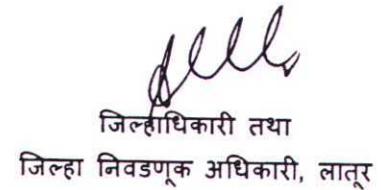 जिल्हाधिकारी तथा
जिल्हा निवडणूक अधिकारी, लातूर